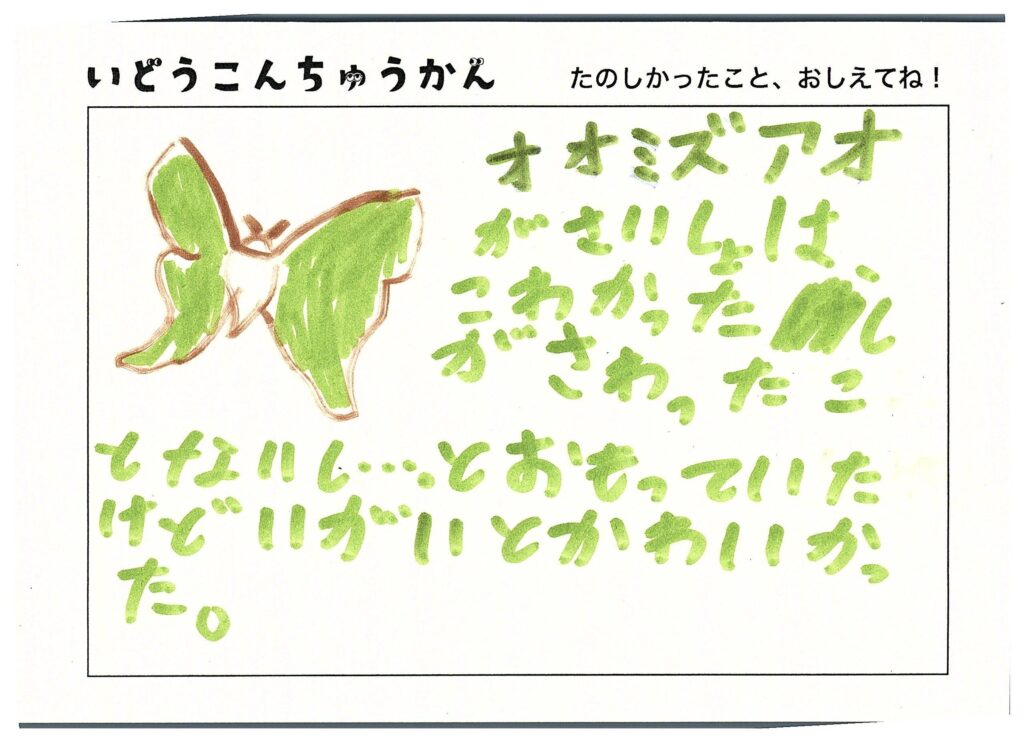 いどうこんちゅうかん
たのしかったこと、おしえてね！
オオミズアオ
がさいしょは、
こわかったし
がさわったこ
とないし…。とおもっていた
けどいがいとかわいかっ
た。